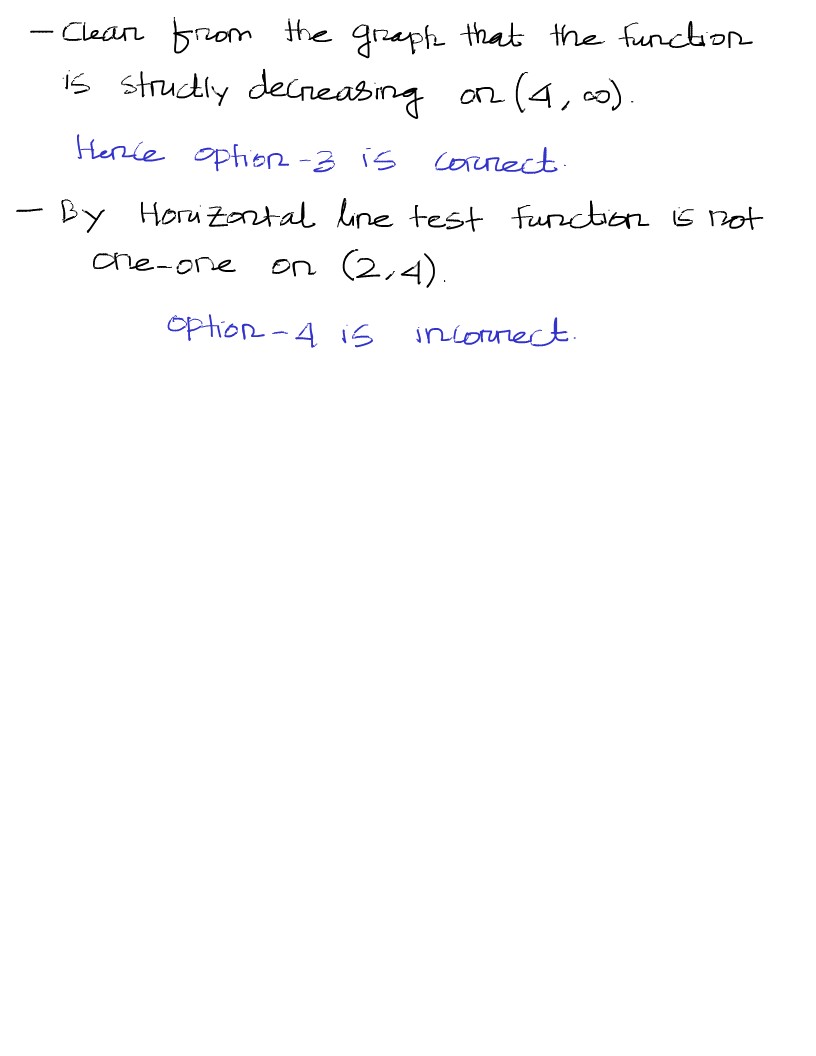 - Clear from the graph that the function
is strictly decreasing on (4, ∞).
Hence option-3 is correct.
- By Horizontal line test function is not
one-one on (2,4).
option-4 is incorrect.